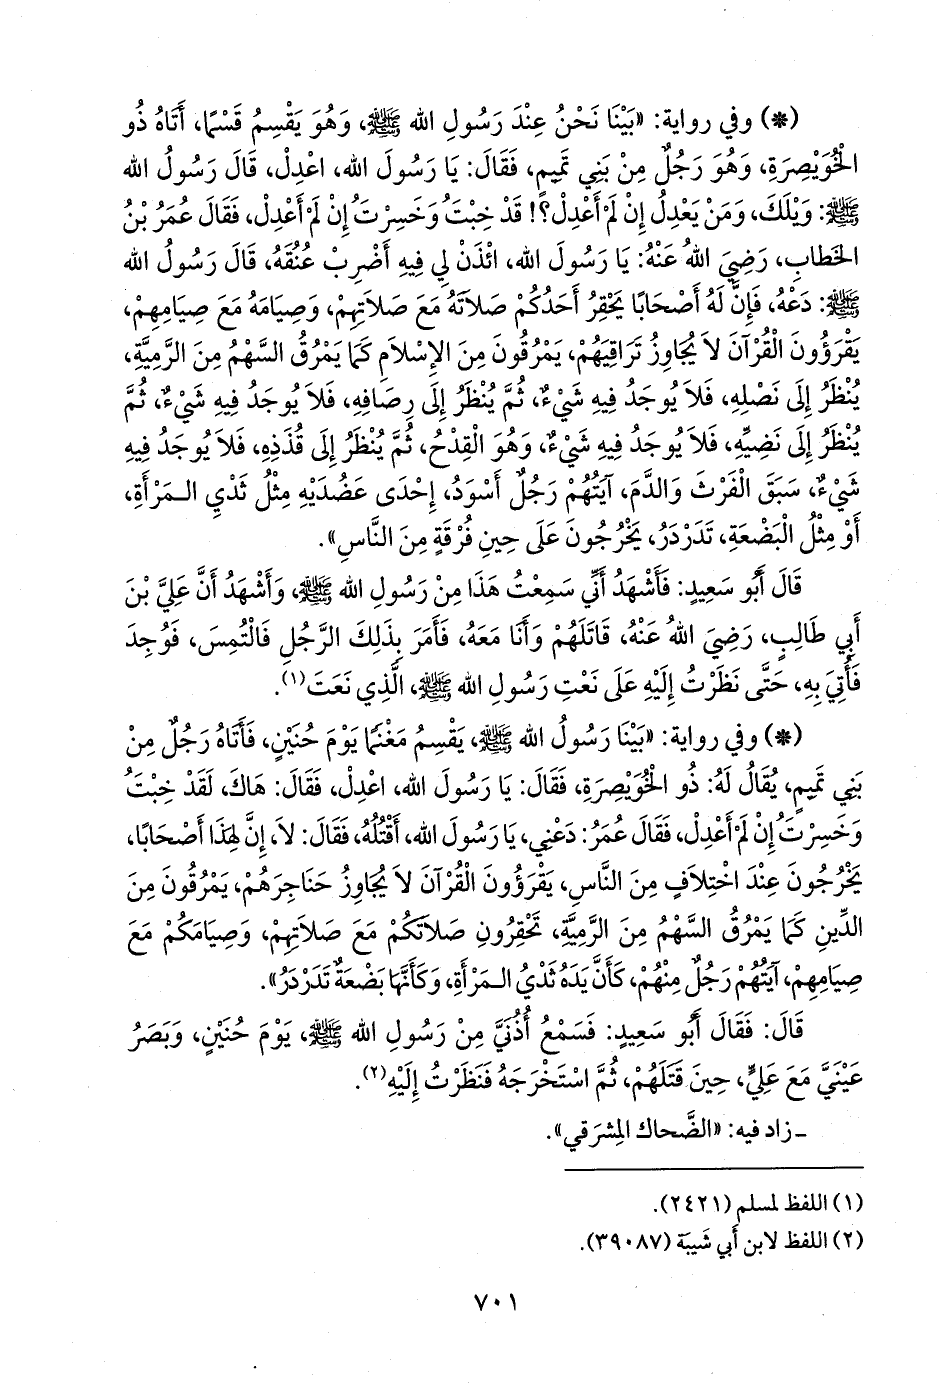 (*) وفي رواية: «بَيْنَا نَحْنُ عِنْدَ رَسُولِ الله ﷺ، وَهُوَ يَقْسِمُ قَسْمًا، أَتَاهُ ذُو
الْخُوَيْصِرَةِ، وَهُوَ رَجُلٌ مِنْ بَنِي تَمِيمٍ، فَقَالَ: يَا رَسُولَ الله، اعْدِلْ، قَالَ رَسُولُ الله
ﷺ: وَيْلَكَ، وَمَنْ يَعْدِلُ إِنْ لَمْ أَعْدِلْ؟! قَدْ خِبْتُ وَخَسِرْتُ إِنْ لَمْ أَعْدِلْ، فَقَالَ عُمَرُ بْنُ
الخَطابِ، رَضِيَ اللهُ عَنْهُ: يَا رَسُولَ الله، ائْذَنْ لِي فِيهِ أَضْرِبْ عُنُقَهُ، قَالَ رَسُولُ الله
ﷺ: دَعْهُ، فَإِنَّ لَهُ أَصْحَابًا يَحْقِرُ أَحَدُكُمْ صَلَاتَهُ مَعَ صَلَاتِهِمْ، وَصِيَامَهُ مَعَ صِيَامِهِمْ،
يَقْرَؤُونَ الْقُرْآنَ لَا يُجَاوِزُ تَرَاقِيَهُمْ، يَمْرُقُونَ مِنَ الإِسْلَامِ كَمَا يَمْرُقُ السَّهْمُ مِنَ الرَّمِيَّةِ،
يُنْظَرُ إِلَى نَصْلِهِ، فَلَا يُوجَدُ فِيهِ شَيْءٌ، ثُمَّ يُنْظَرُ إِلَى رِصَافِهِ، فَلَا يُوجَدُ فِيهِ شَيْءٌ، ثُمَّ
يُنْظَرُ إِلَى نَضِيِّهِ، فَلَا يُوجَدُ فِيهِ شَيْءٌ، وَهُوَ الْقِدْحُ، ثُمَّ يُنْظَرُ إِلَى قُذَذِهِ، فَلَا يُوجَدُ فِيهِ
شَيْءٌ، سَبَقَ الْفَرْثَ وَالدَّمَ، آيَتُهُمْ رَجُلٌ أَسْوَدُ، إِحْدَى عَضُدَيْهِ مِثْلُ ثَدْيِ الـمَرْأَةِ،
أَوْ مِثْلُ الْبَضْعَةِ، تَدَرْدَرُ، يَخْرُجُونَ عَلَى حِينِ فُرْقَةٍ مِنَ النَّاسِ».
قَالَ أَبُو سَعِيدٍ: فَأَشْهَدُ أَنِّي سَمِعْتُ هَذَا مِنْ رَسُولِ الله ﷺ، وَأَشْهَدُ أَنَّ عَلِيَّ بْنَ
أَبِي طَالِبٍ، رَضِيَ اللهُ عَنْهُ، قَاتَلَهُمْ وَأَنَا مَعَهُ، فَأَمَرَ بِذَلِكَ الرَّجُلِ فَالْتُمِسَ، فَوُجِدَ
فَأُتِيَ بِهِ، حَتَّى نَظَرْتُ إِلَيْهِ عَلَى نَعْتِ رَسُولِ الله ﷺ، الَّذِي نَعَتَ(١).
(*) وفي رواية: «بَيْنَا رَسُولُ الله ﷺ، يَقْسِمُ مَغْنَمًا يَوْمَ حُنَيْنٍ، فَأَتَاهُ رَجُلٌ مِنْ
بَنِي تَمِيمٍ، يُقَالُ لَهُ: ذُو الْخُوَيْصِرَةِ، فَقَالَ: يَا رَسُولَ الله، اعْدِلْ، فَقَالَ: هَاكَ، لَقَدْ خِبْتُ
وَخَسِرْتُ إِنْ لَمْ أَعْدِلْ، فَقَالَ عُمَرُ: دَعْنِي، يَا رَسُولَ الله، أَقْتُلُهُ، فَقَالَ: لَا، إِنَّ لِهَذَا أَصْحَابًا،
يَخْرُجُونَ عِنْدَ اخْتِلَافٍ مِنَ النَّاسِ، يَقْرَؤُونَ الْقُرْآنَ لَا يُجَاوِزُ حَنَاجِرَهُمْ، يَمْرُقُونَ مِنَ
الدِّينِ كَمَا يَمْرُقُ السَّهْمُ مِنَ الرَّمِيَّةِ، تَحْقِرُونِ صَلَاتَكُمْ مَعَ صَلَاتِهِمْ، وَصِيَامَكُمْ مَعَ
صِيَامِهِمْ، آيَتُهُمْ رَجُلٌ مِنْهُمْ، كَأَنَّ يَدَهُ ثَدْيُ الـمَرْأَةِ، وَكَأَنَّهَا بَضْعَةٌ تَدَرْدَرُ».
قَالَ: فَقَالَ أَبُو سَعِيدٍ: فَسَمْعُ أُذُنَيَّ مِنْ رَسُولِ الله ﷺ، يَوْمَ حُنَيْنٍ، وَبَصَرُ
عَيْنَيَّ مَعَ عَلِيٍّ، حِينَ قَتَلَهُمْ، ثُمَّ اسْتَخْرَجَهُ فَنَظَرْتُ إِلَيْهِ(٢).
ـ زاد فيه: «الضَّحاك المِشرَقي».
(١) اللفظ لمسلم (٢٤٢١).
(٢) اللفظ لابن أَبي شَيبَة (٣٩٠٨٧).
٧٠١